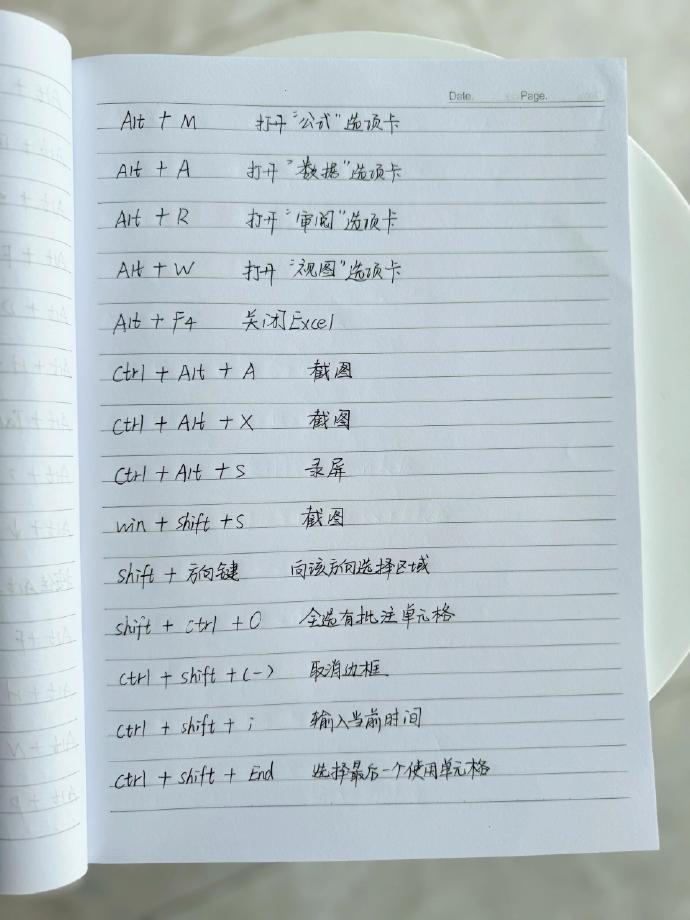 Date. Page.
Alt + M 打开"公式"选项卡
Alt + A 打开"数据"选项卡
Alt + R 打开"审阅"选项卡
Alt + W 打开"视图"选项卡
Alt + F4 关闭Excel
Ctrl + Alt + A 截图
Ctrl + Alt + X 截图
Ctrl + Alt + S 录屏
win + shift + S 截图
shift + 方向键 向该方向选择区域
shift + ctrl + O 全选有批注单元格
ctrl + shift + (-) 取消边框
ctrl + shift + ; 输入当前时间
ctrl + shift + End 选择最后一个使用单元格